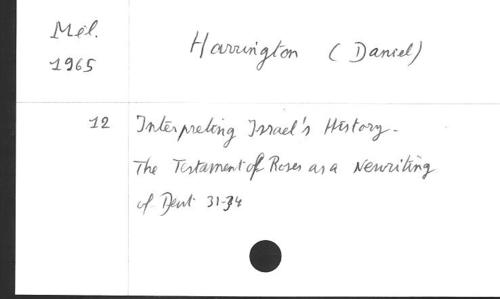 Mél.
1965
Harrington (Daniel)
12
Interpreting Israel's History.
The Testament of Roses as a Newriting
of Deut 31-34